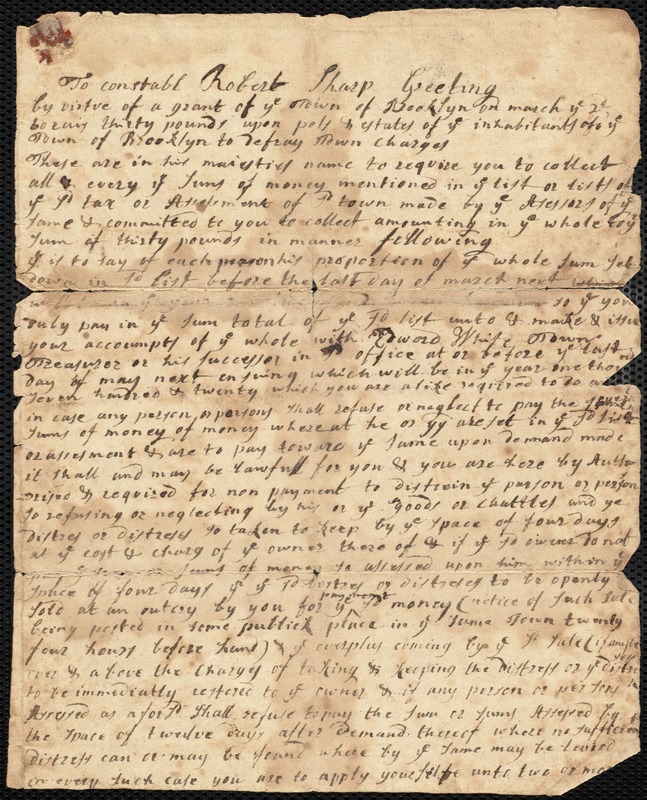 To constabl Robert Sharp Greeting
by virtve of a grant of yᵉ Town of Brooklyn on march yᵉ 2ᵈ
to rais thirty pounds upon pols & estates of yᵉ inhabitants of yᵉ
Town of Brooklyn to Defray Town Charges
These are in his maiesties name to require you to collect
all & every yᵉ sums of money mentioned in yᵉ list or lists of
yᵉ sᵈ tax or Assesment of sᵈ town made by yᵉ Asessors of yᵉ
same & committed to you to collect amounting in yᵉ whole to yᵉ
sum of thirty pounds in manner following
yᵗ is to say of each person his proportion of yᵉ whole sum set
down in sᵈ List before the last day of march next
so yᵗ you
truly pay in yᵉ sum total of yᵉ sᵈ list unto & make & issue
your accoumpts of yᵉ whole with Edword White Town
Treasurer or his successor in office at or before yᵉ last
day of may next ensuing which will be in yᵉ year one thou
seven hundred & twenty which you are alike required to do and
in case any person or persons shall refuse or neglect to pay the
sums of money of money whereat he or yy are set in yᵉ sᵈ list
or assesment & are to pay toward yᵉ same upon demand made
it shall and may be lawfull for you & you are here by Autho
rised & required for non payment to distrein yᵉ parson or person
so refusing or neglecting by his or yᵉ goods or chattles and ye
distres or distreses so taken to keep by yᵉ space of four days
at yᵉ cost & charg of yᵉ owner there of & if yᵉ so owner do not
sums of money so assessed upon him with in yᵉ
space of four days yⁿ yᵉ sᵈ distres or distreses to be openly
sold at an outcry by you for yᵉ payment sᵈ money (notice of such sale
being posted in some publick place in yᵉ same Town twenty
four hours before hand) & yᵉ overplus coming by yᵉ sᵈ sale (if any be
over & above the Charges of taking & keeping the distress or yᵉ distre
to be immediatly restored to yᵉ owner & if any person or persons
Assesed as aforsᵈ shall refuse to pay the sum or sums Assesed by
the space of twelve days after Demand thereof where no sufficien
distress can or may be found where by yᵉ same may be levied
in every such case you are to apply yourself unto two or mo